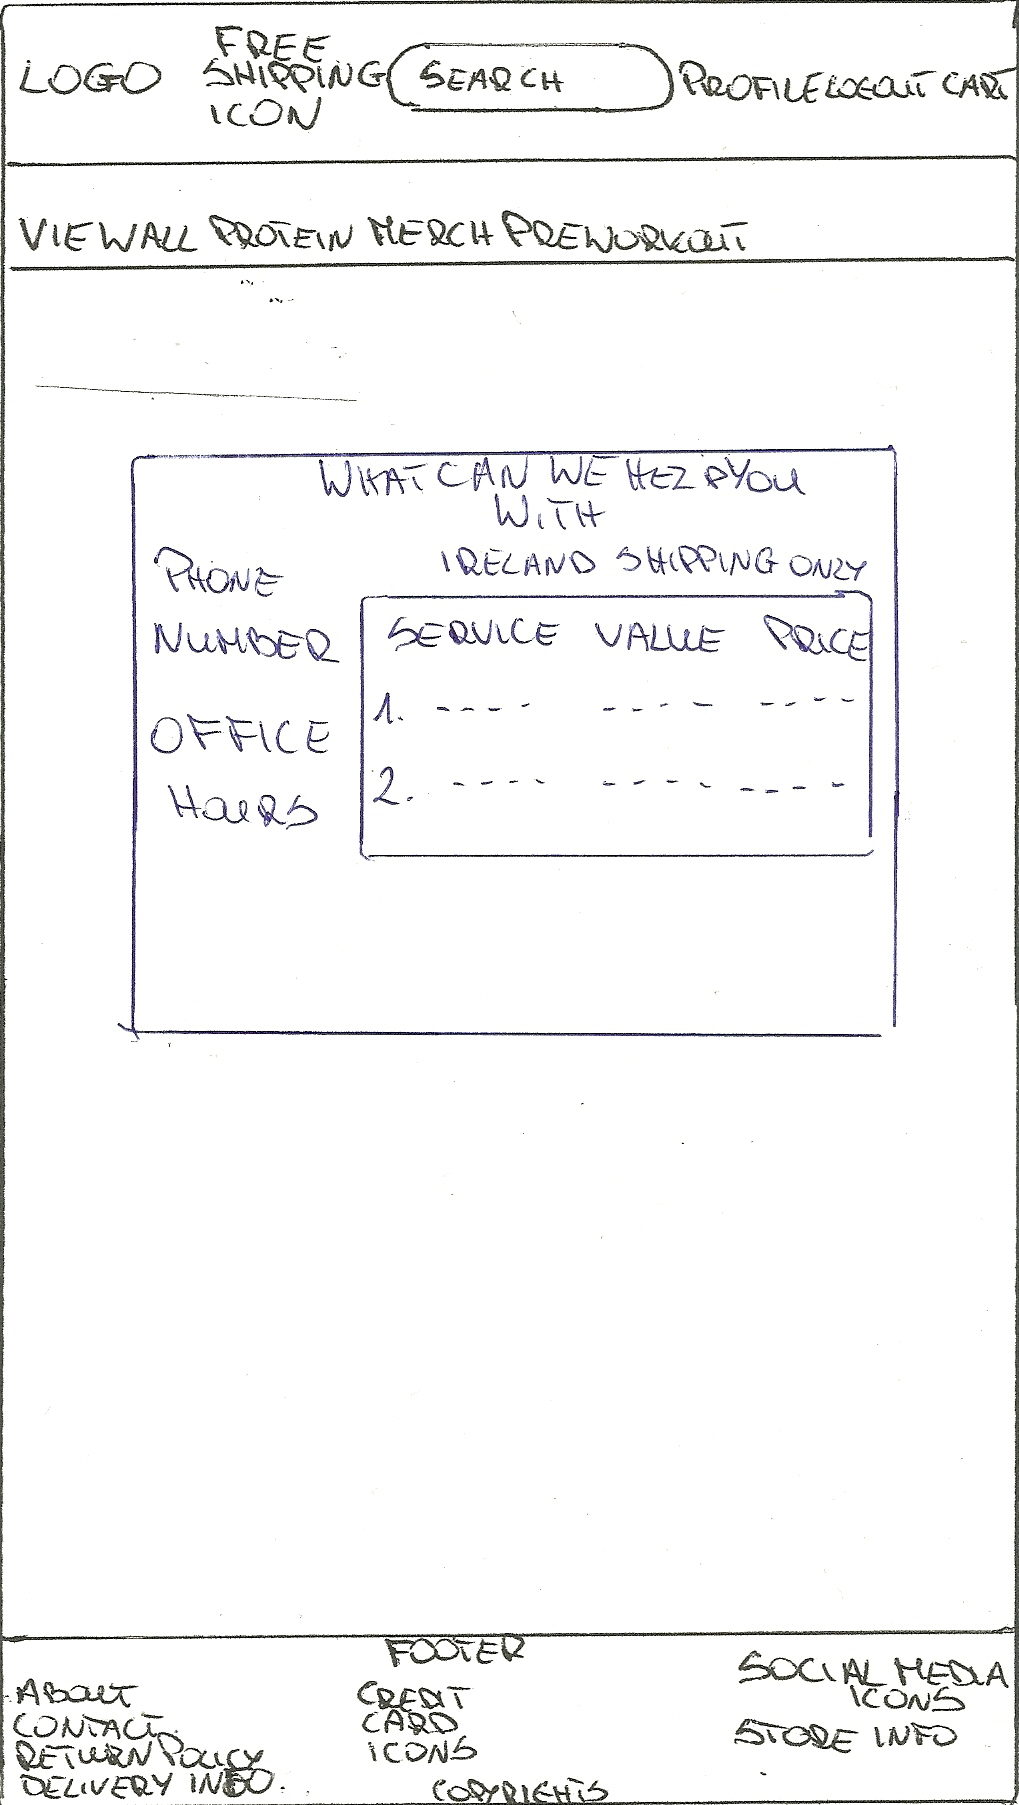 LOGO FREE SHIPPING ICON SEARCH PROFILE LOGOUT CART
VIEW ALL PROTEIN MERCH PREWORKOUT
WHAT CAN WE HELP YOU
WITH
IRELAND SHIPPING ONLY
PHONE
NUMBER
OFFICE
HOURS
SERVICE VALUE PRICE
1. ---- ---- ----
2. ---- ---- ----
FOOTER
ABOUT
CONTACT
RETURN POLICY
DELIVERY INFO.
CREDIT
CARD
ICONS
COPYRIGHTS
SOCIAL MEDIA
ICONS
STORE INFO